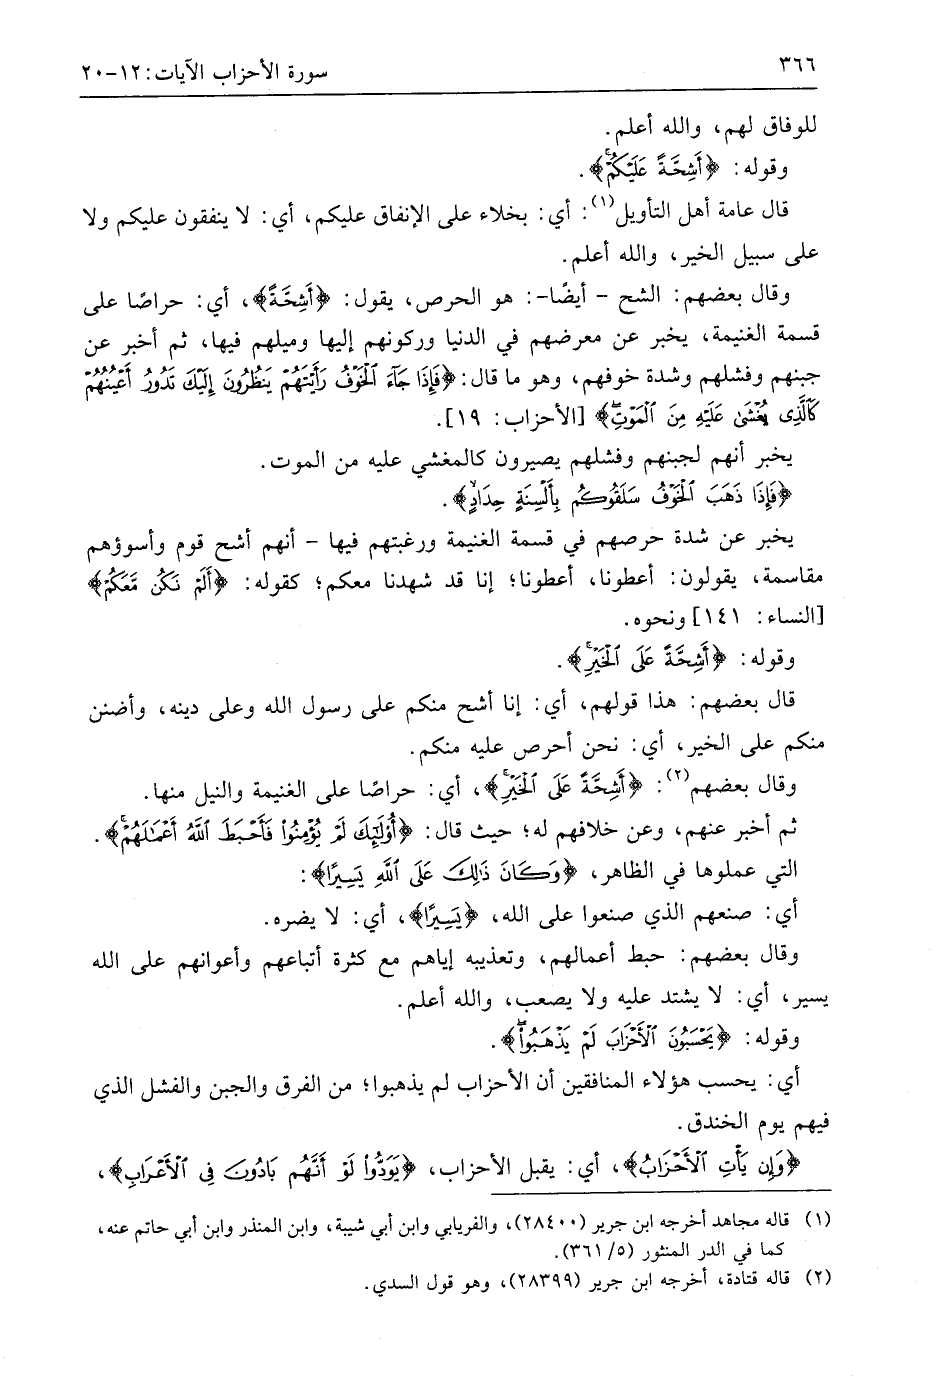 ٣٦٦ سورة الأحزاب الآيات: ١٢-٢٠
للوفاق لهم، والله أعلم.
وقوله: ﴿أَشِحَّةً عَلَيْكُمْ﴾.
قال عامة أهل التأويل(١): أي: بخلاء على الإنفاق عليكم، أي: لا ينفقون عليكم ولا
على سبيل الخير، والله أعلم.
وقال بعضهم: الشح - أيضًا-: هو الحرص، يقول: ﴿أَشِحَّةً﴾، أي: حراصًا على
قسمة الغنيمة، يخبر عن معرضهم في الدنيا وركونهم إليها وميلهم فيها، ثم أخبر عن
جبنهم وفشلهم وشدة خوفهم، وهو ما قال: ﴿فَإِذَا جَآءَ ٱلْخَوْفُ رَأَيْتَهُمْ يَنظُرُونَ إِلَيْكَ تَدُورُ أَعْيُنُهُمْ
كَٱلَّذِى يُغْشَىٰ عَلَيْهِ مِنَ ٱلْمَوْتِ﴾ [الأحزاب: ١٩].
يخبر أنهم لجبنهم وفشلهم يصيرون كالمغشي عليه من الموت.
﴿فَإِذَا ذَهَبَ ٱلْخَوْفُ سَلَقُوكُم بِأَلْسِنَةٍ حِدَادٍ﴾.
يخبر عن شدة حرصهم في قسمة الغنيمة ورغبتهم فيها - أنهم أشح قوم وأسوؤهم
مقاسمة، يقولون: أعطونا، أعطونا؛ إنا قد شهدنا معكم؛ كقوله: ﴿أَلَمْ نَكُن مَّعَكُمْ﴾
[النساء: ١٤١] ونحوه.
وقوله: ﴿أَشِحَّةً عَلَى ٱلْخَيْرِ﴾.
قال بعضهم: هذا قولهم، أي: إنا أشح منكم على رسول الله وعلى دينه، وأضنن
منكم على الخير، أي: نحن أحرص عليه منكم.
وقال بعضهم(٢): ﴿أَشِحَّةً عَلَى ٱلْخَيْرِ﴾، أي: حراصًا على الغنيمة والنيل منها.
ثم أخبر عنهم، وعن خلافهم له؛ حيث قال: ﴿أُوْلَٰٓئِكَ لَمْ يُؤْمِنُوا۟ فَأَحْبَطَ ٱللَّهُ أَعْمَٰلَهُمْ﴾.
التي عملوها في الظاهر، ﴿وَكَانَ ذَٰلِكَ عَلَى ٱللَّهِ يَسِيرًا﴾:
أي: صنعهم الذي صنعوا على الله، ﴿يَسِيرًا﴾، أي: لا يضره.
وقال بعضهم: حبط أعمالهم، وتعذيبه إياهم مع كثرة أتباعهم وأعوانهم على الله
يسير، أي: لا يشتد عليه ولا يصعب، والله أعلم.
وقوله: ﴿يَحْسَبُونَ ٱلْأَحْزَابَ لَمْ يَذْهَبُوا۟﴾.
أي: يحسب هؤلاء المنافقين أن الأحزاب لم يذهبوا؛ من الفرق والجبن والفشل الذي
فيهم يوم الخندق.
﴿وَإِن يَأْتِ ٱلْأَحْزَابُ﴾، أي: يقبل الأحزاب، ﴿يَوَدُّوا۟ لَوْ أَنَّهُم بَادُونَ فِى ٱلْأَعْرَابِ﴾،
(١) قاله مجاهد أخرجه ابن جرير (٢٨٤٠٠)، والفريابي وابن أبي شيبة، وابن المنذر وابن أبي حاتم عنه،
كما في الدر المنثور (٥/ ٣٦١).
(٢) قاله قتادة، أخرجه ابن جرير (٢٨٣٩٩)، وهو قول السدي.